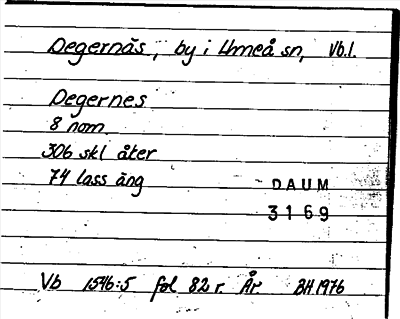 Degernäs, by i Umeå sn, Vb.l.
Degernes
8 nom
306 skl åker
74 lass äng
DAUM
3169
Vb 1546:5 fol 82 r. År BH 1976